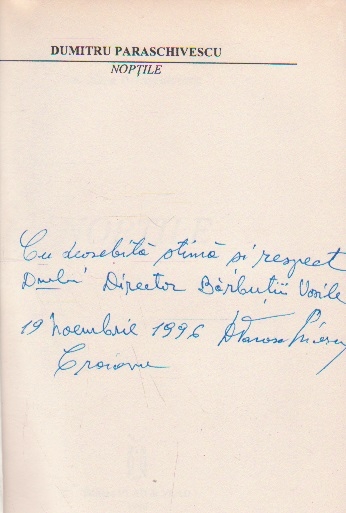 DUMITRU PARASCHIVESCU
NOPȚILE
Cu deosebită stimă și respect
Director Bărbuții Vasile
19 Noembrie 1996